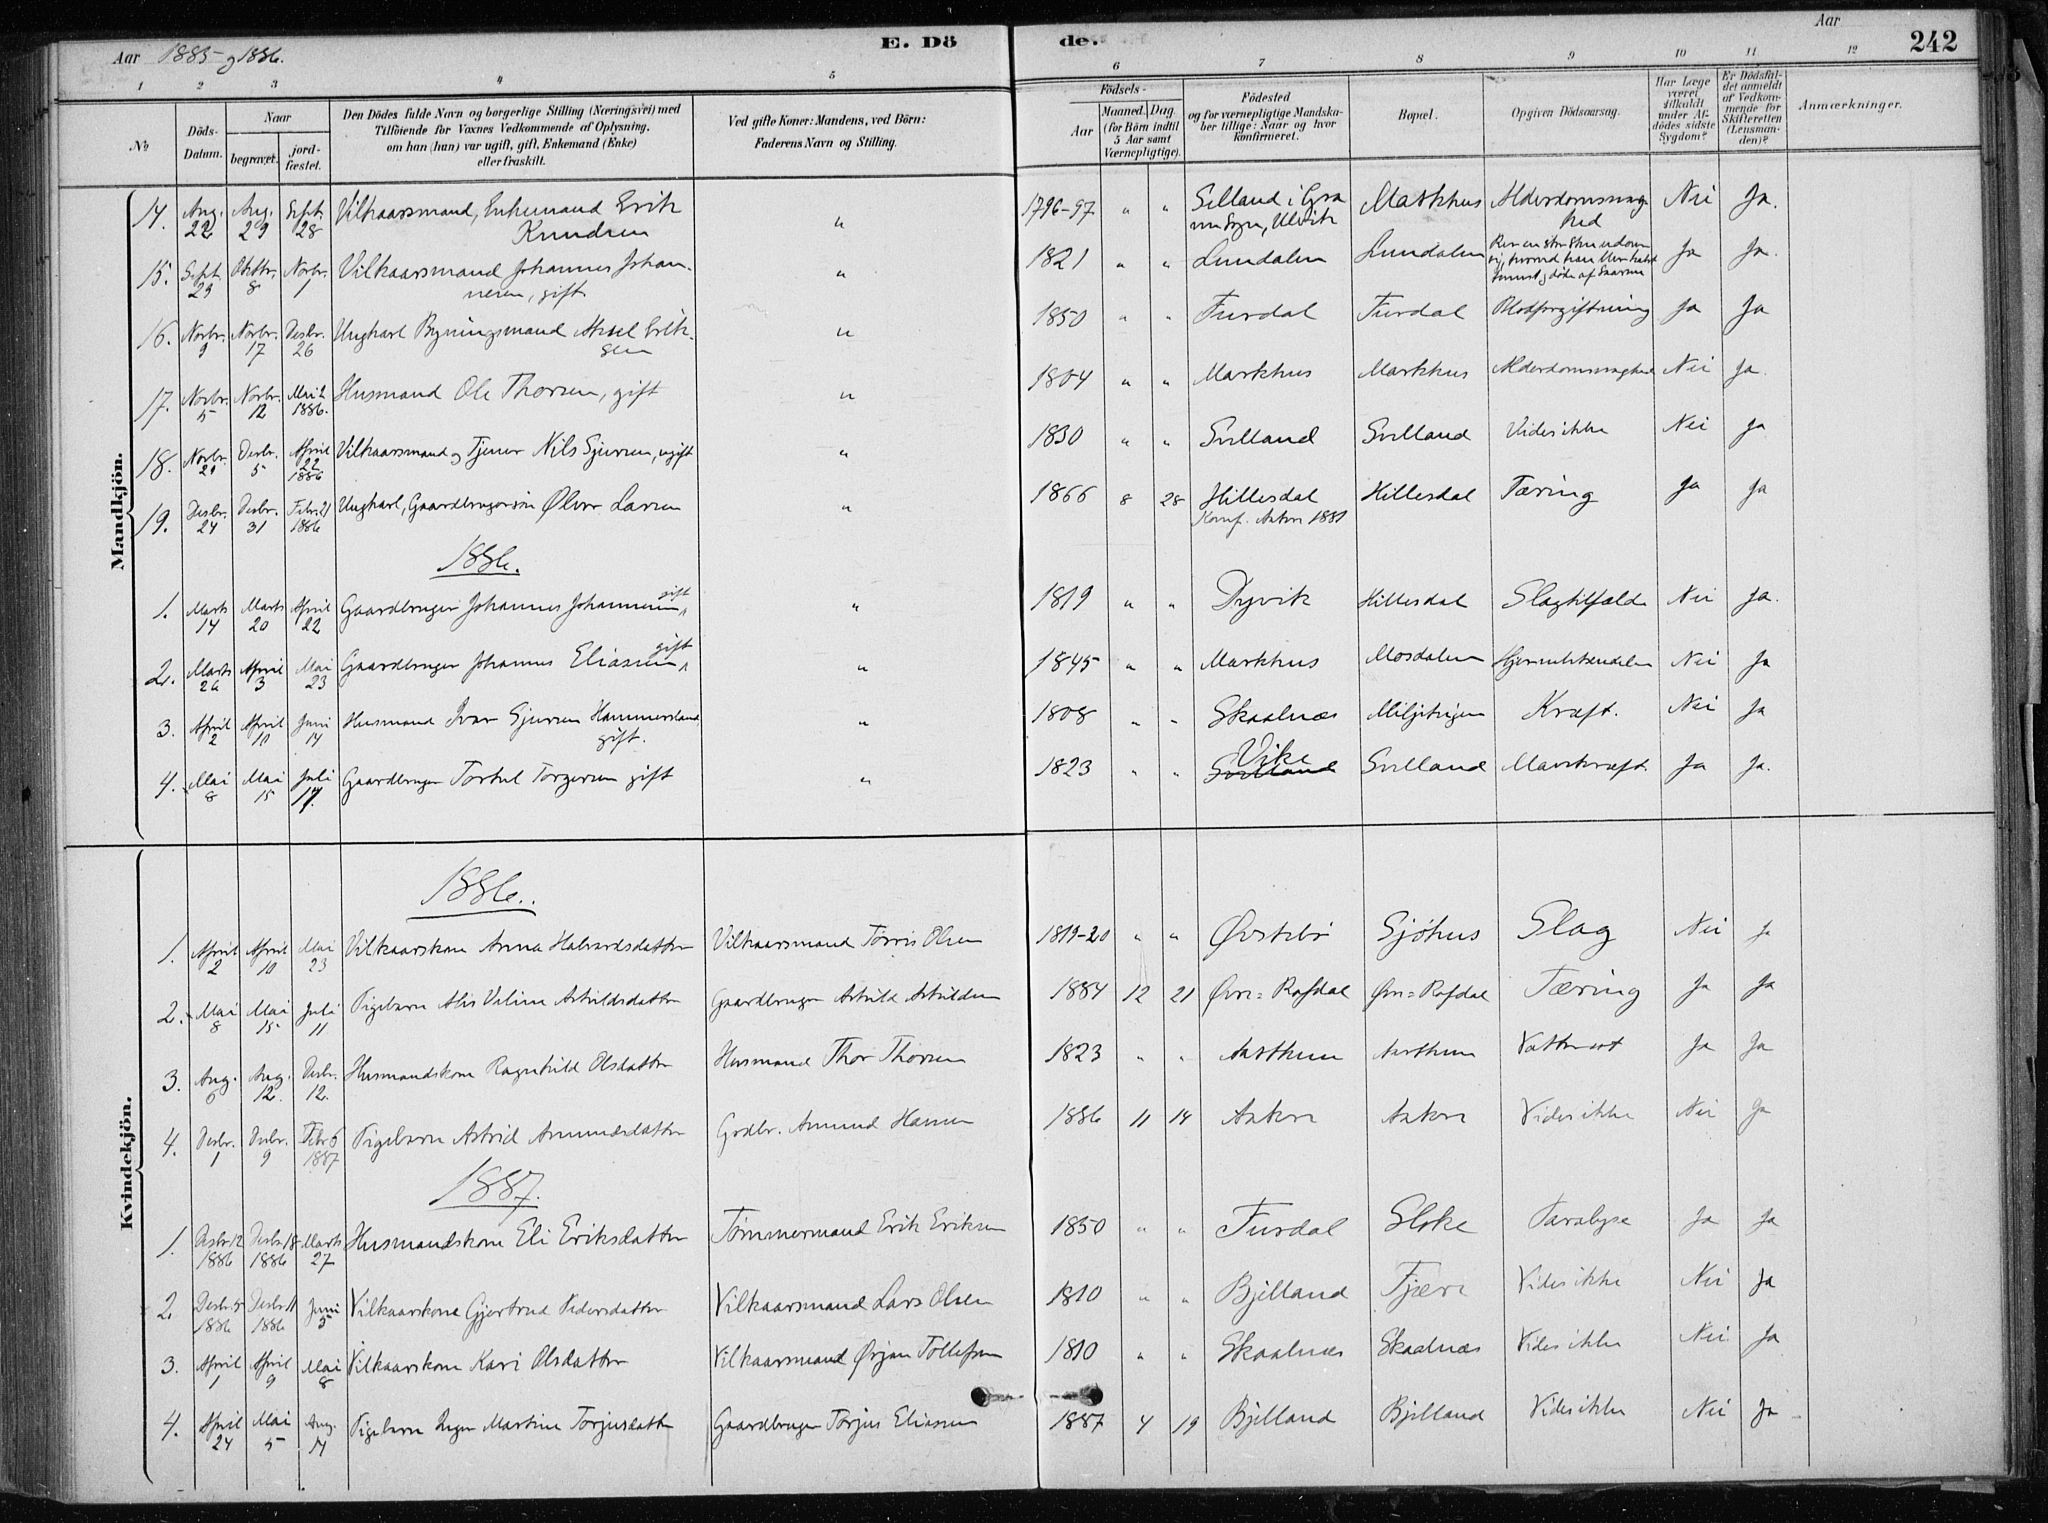 Aar 1885 og 1886.
E. Dö
de.
Aar
242
1 2 3 4 5 6 7 8 9 10 11 12
No
Döds-Datum.
Naar
begravet.
jord-fæstet.
Den Dödes fulde Navn og borgerlige Stilling (Næringsvei) med
Tilföiende for Voxnes Vedkommende af Oplysning,
om han (hun) var ugift, gift, Enkemand (Enke)
eller fraskilt.
Ved gifte Koner: Mandens, ved Börn:
Faderens Navn og Stilling.
Födsels-
Aar
Maaned. Dag.
(for Börn indtil
5 Aar samt
Værnepligtige).
Födested
og for værnepligtige Mandska-
ber tillige: Naar og hvor
konfirmeret.
Bopæl.
Opgiven Dödsaarsag.
Har Læge
været
tilkaldt
under Af-
dödes sidste
Sygdom?
Er Dödsfal-
det anmeldt
af Vedkom-
mende for
Skifteretten
(Lensman-
den)?
Anmærkninger.
Mandkjön.
14. Aug. 22 Aug. 29 Sept. 28 Vilkaarsmand, Enkemand Erik Knudsen " 1796-97 " " Selland i Gra- Ulvik Markhus Alderdomssvaghed Nei Ja.
15. Sept. 29 Oktbr. 8 Novbr. 1 Vilkaarsmand Johannes Johannesen, gift " 1821 " " Lundalen Lundalen Ja Ja.
16. Novbr. 9 Novbr. 17 Desbr. 26 Ungkarl Bygningsmand Aksel Eriksen " 1850 " " Furdal Furdal Blodforgiftning Ja Ja
17. Novbr. 5 Novbr. 12 Mai 2 1886. Husmand Ole Thorsen, gift " 1804 " " Markhus Markhus Alderdomssvaghed Nei Ja.
18. Novbr. 29 Desbr. 5 April 22 1886 Vilkaarsmand og Tjener Nils Sjursen, ugift " 1830 " " Svelland Svelland Vides ikke Nei Ja
19. Desbr. 24 Desbr. 31 Febr. 21 1886 Ungkarl, Gaardbrugersön Ølver Larsen " 1866 8 28 Hillesdal Konf. Aakre 1881 Hillesdal Tæring Ja Ja
1886.
1. Marts 14 Marts 20 April 22 Gaardbruger Johannes Johannesen, gift " 1819 " " Dyvik Hillesdal Slagtilfælde Nei Ja.
2. Marts 26 April 3 Mai 23 Gaardbruger Johannes Eliassen, gift " 1845 " " Markhus Mosdalen Nei Ja
3. April 2 April 10 Juni 14 Husmand Ivar Sjursen Hammersland gift. " 1808 " " Skaalnæs Kræft. Nei Ja
4. Mai 8 Mai 15 Juli 11 Gaardbruger Torkel Torgersen gift " 1823 " " Svelland Vike Svelland Mavekræft. Ja Ja.
Kvindekjön.
1886.
1. April 2 April 10 Mai 23 Vilkaarskone Anna Halvardsdatter Vilkaarsmand Tørris Olsen 1819-20 " " Øvstebø Sjöhus Slag Nei Ja
2. Mai 8 Mai 15 Juli 11 Pigebarn Alis Veline Askildsdatter Gaardbruger Askild Askildsen 1884 12 21 Øvre=Rafdal Øvre=Rafdal Tæring Ja Ja
3. Aug. 6 Aug. 12. Desbr. 12. Husmandskone Ragnhild Olsdatter Husmand Thor Thorsen 1823 " " Aarthun Aarthun Vattersot Ja Ja
4. Desbr. 1 Desbr. 9 Febr 6 1887 Pigebarn Astrid Amundsdatter Grdbr. Amund Hansen 1886 11 14 Aakre Aakre Vides ikke Nei Ja
1887.
1. Desbr 12 1886 Desbr. 18 1886 Marts 27 Husmandskone Eli Eriksdatter Tømmermand Erik Eriksen 1850 " " Furdal Sloke Paralyse Ja Ja
2. Desbr. 5 1886 Desbr. 11 1886 Juni 5 Vilkaarskone Gjertrud Pedersdatter Vilkaarsmand Lars Olsen 1810 " " Bjelland Fjære Vides ikke Nei Ja
3. April 1 April 9 Mai 8 Vilkaarskone Kari Olsdatter Vilkaarsmand Ørjan Tollefsen 1810 " " Skaalnæs Skaalnæs Vides ikke Nei Ja
4. April 24 Mai 5 Aug. 14 Pigebarn Inger Martine Torjusdatter Gaardbruger Torjus Eliassen 1887 4 19 Bjelland Bjelland Vides ikke Nei Ja